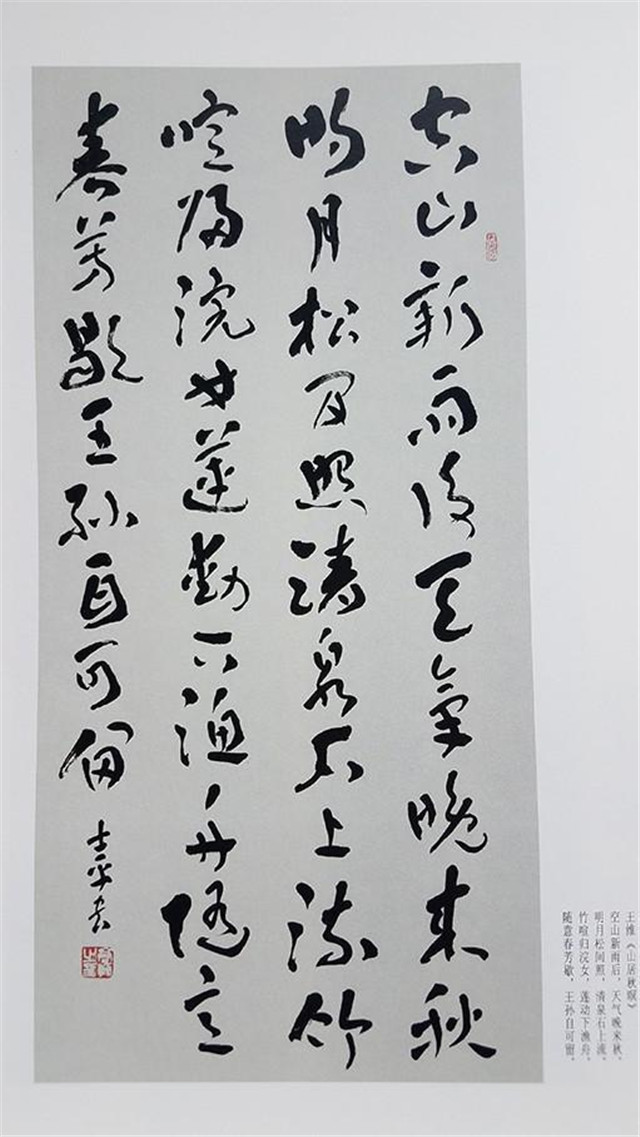 空山新雨後天氣晚來秋
明月松間照清泉石上流竹
喧歸浣女蓮動下漁舟隨意
春芳歇王孫自可留
王维《山居秋暝》
空山新雨后，天气晚来秋。
明月松间照，清泉石上流。
竹喧归浣女，莲动下渔舟。
随意春芳歇，王孙自可留。